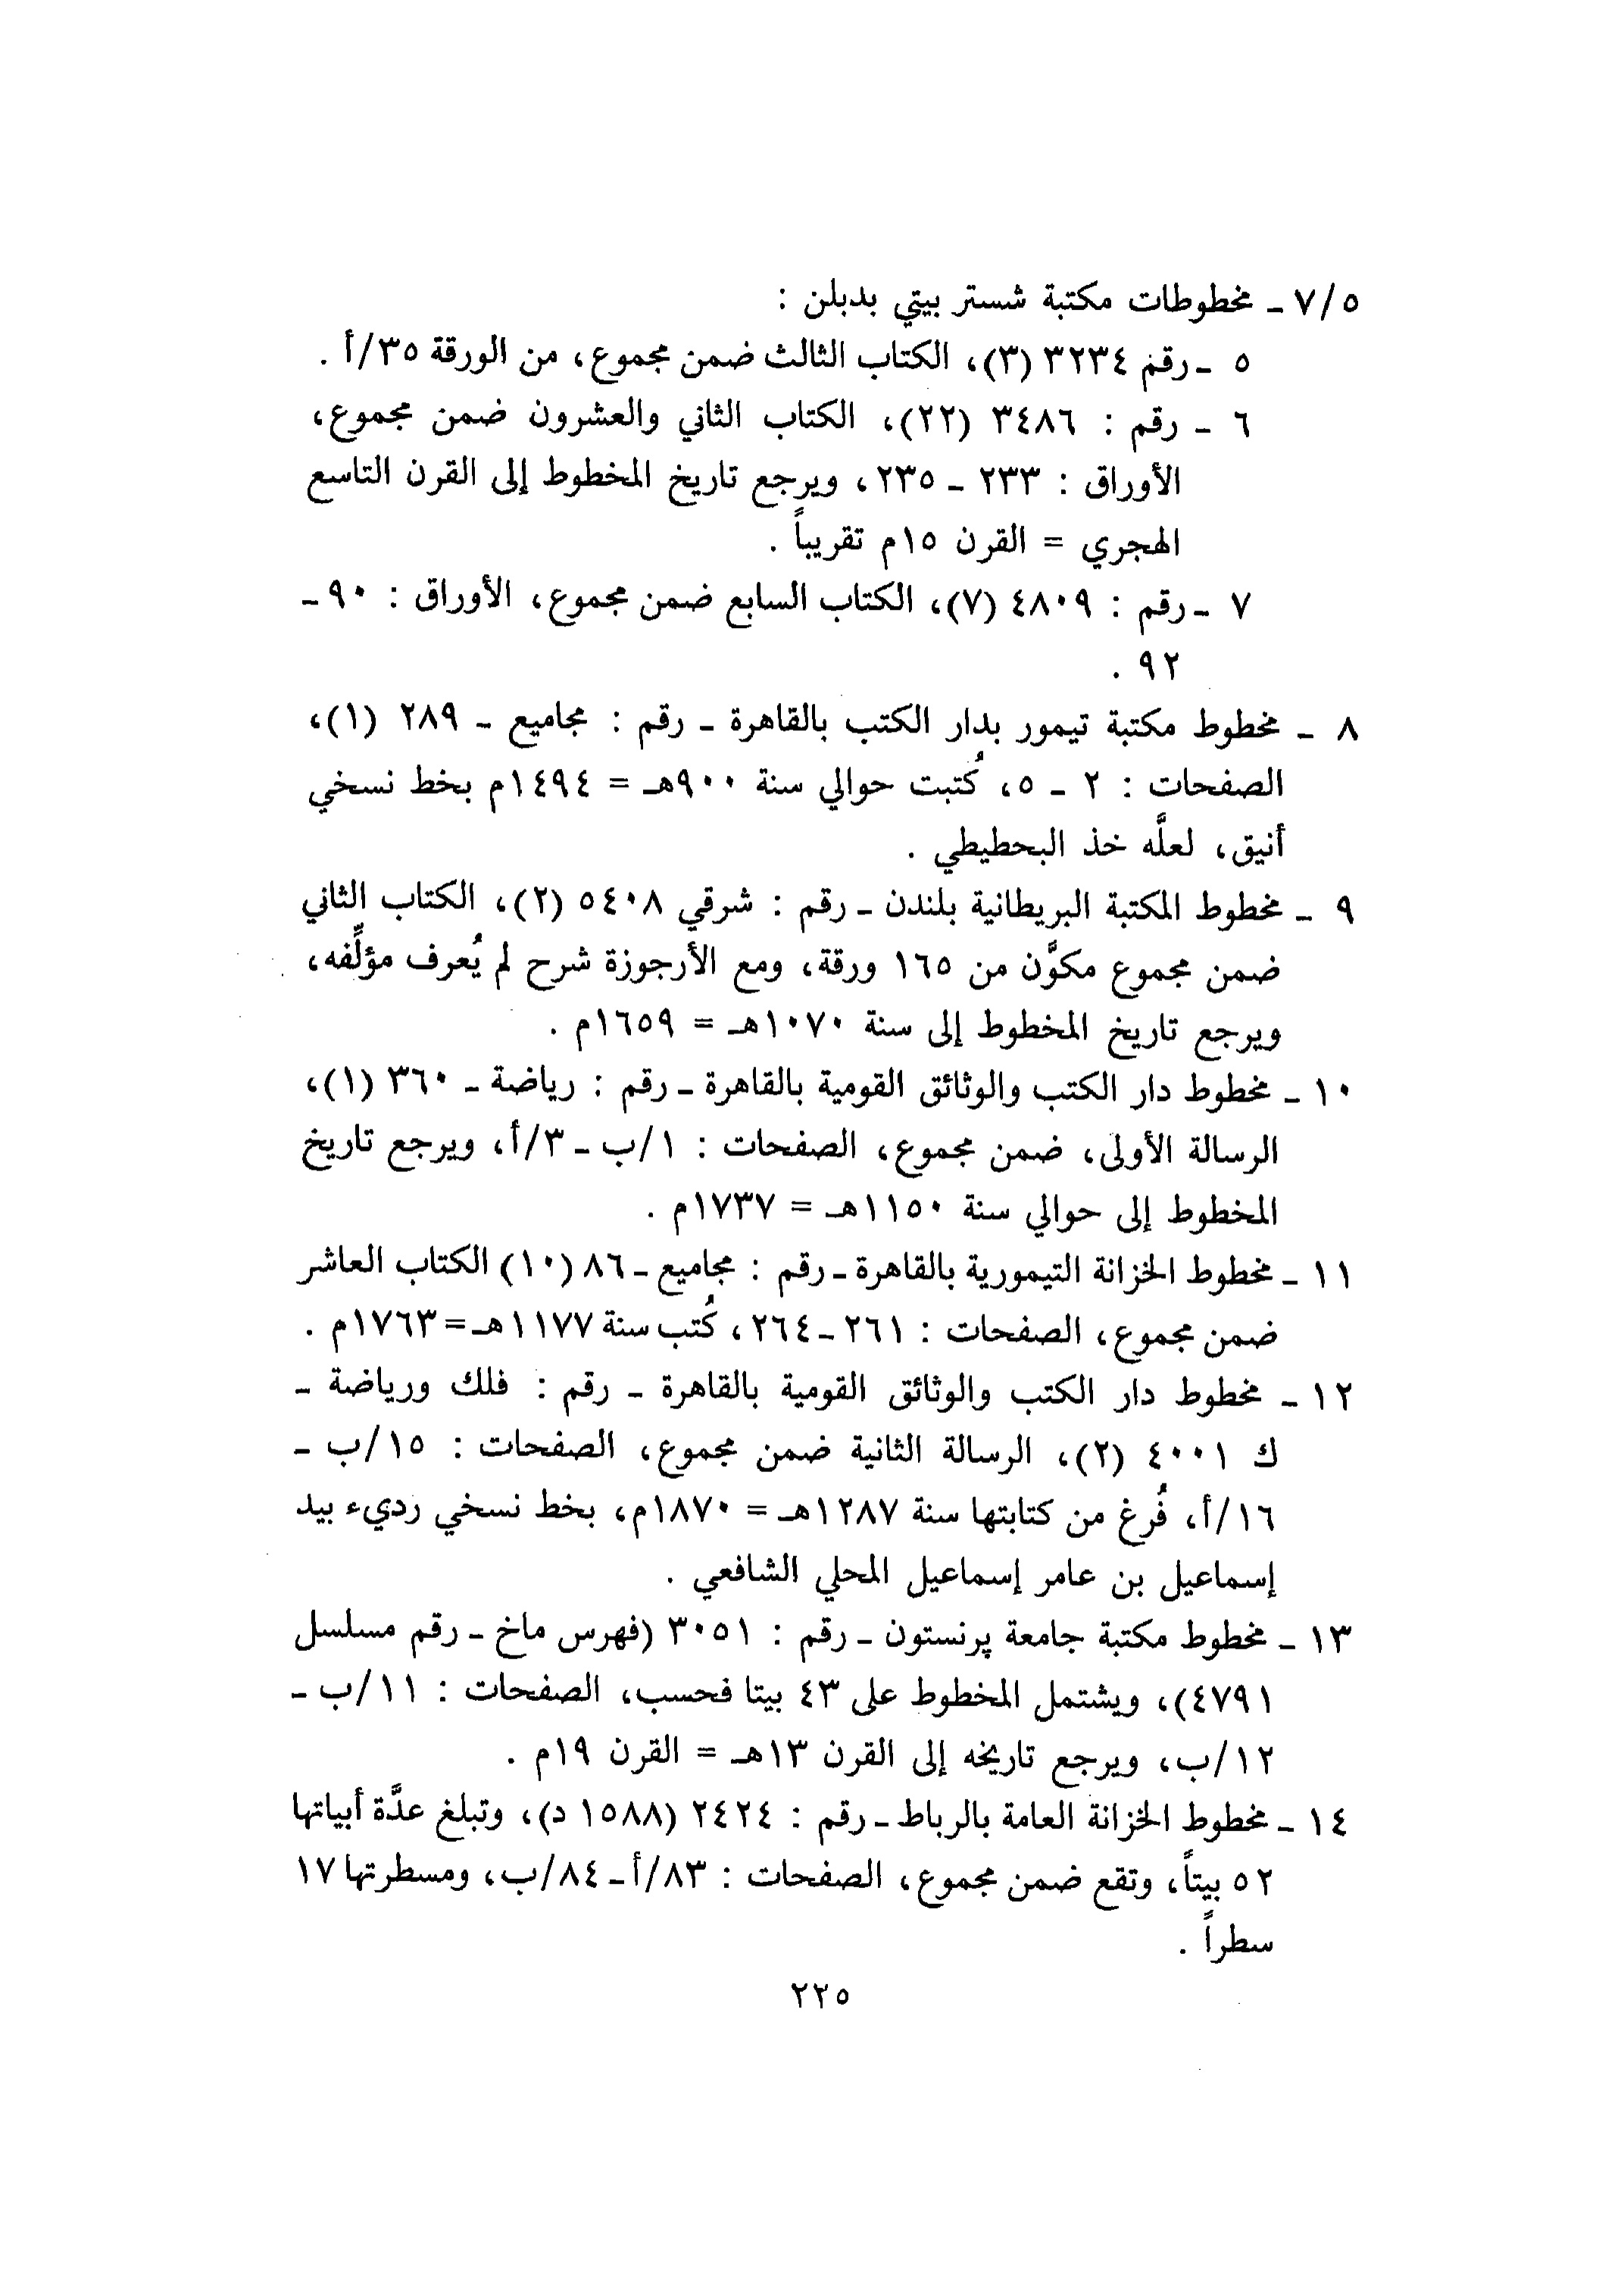 ٧/٥ ـ مخطوطات مكتبة شستر بيتي بدبلن :
٥ ـ رقم ٣٢٣٤ (٣)، الكتاب الثالث ضمن مجموع، من الورقة ٣٥/أ .
٦ ـ رقم : ٣٤٨٦ (٢٢)، الكتاب الثاني والعشرون ضمن مجموع،
الأوراق : ٢٣٣ ـ ٢٣٥، ويرجع تاريخ المخطوط إلى القرن التاسع
الهجري = القرن ١٥م تقريباً .
٧ ـ رقم : ٤٨٠٩ (٧)، الكتاب السابع ضمن مجموع، الأوراق : ٩٠ ـ
٩٢ .
٨ ـ مخطوط مكتبة تيمور بدار الكتب بالقاهرة ـ رقم : مجاميع ـ ٢٨٩ (١)،
الصفحات : ٢ ـ ٥، كُتبت حوالي سنة ٩٠٠هـ = ١٤٩٤م بخط نسخي
أنيق، لعلَّه خذ البحطيطي .
٩ ـ مخطوط المكتبة البريطانية بلندن ـ رقم : شرقي ٥٤٠٨ (٢)، الكتاب الثاني
ضمن مجموع مكوَّن من ١٦٥ ورقة، ومع الأرجوزة شرح لم يُعرف مؤلِّفه،
ويرجع تاريخ المخطوط إلى سنة ١٠٧٠هـ = ١٦٥٩م .
١٠ ـ مخطوط دار الكتب والوثائق القومية بالقاهرة ـ رقم : رياضة ـ ٣٦٠ (١)،
الرسالة الأولى، ضمن مجموع، الصفحات : ١/ب ـ ٣/أ، ويرجع تاريخ
المخطوط إلى حوالي سنة ١١٥٠هـ = ١٧٣٧م .
١١ ـ مخطوط الخزانة التيمورية بالقاهرة ـ رقم : مجاميع ـ ٨٦ (١٠) الكتاب العاشر
ضمن مجموع، الصفحات : ٢٦١ ـ ٢٦٤، كُتب سنة ١١٧٧هـ = ١٧٦٣م .
١٢ ـ مخطوط دار الكتب والوثائق القومية بالقاهرة ـ رقم : فلك ورياضة ـ
ك ٤٠٠١ (٢)، الرسالة الثانية ضمن مجموع، الصفحات : ١٥/ب ـ
١٦/أ، فُرغ من كتابتها سنة ١٢٨٧هـ = ١٨٧٠م، بخط نسخي رديء بيد
إسماعيل بن عامر إسماعيل المحلي الشافعي .
١٣ ـ مخطوط مكتبة جامعة پرنستون ـ رقم : ٣٠٥١ (فهرس ماخ ـ رقم مسلسل
٤٧٩١)، ويشتمل المخطوط على ٤٣ بيتا فحسب، الصفحات : ١١/ب ـ
١٢/ب، ويرجع تاريخه إلى القرن ١٣هـ = القرن ١٩م .
١٤ ـ مخطوط الخزانة العامة بالرباط ـ رقم : ٢٤٢٤ (١٥٨٨ د)، وتبلغ عدَّة أبياتها
٥٢ بيتاً، وتقع ضمن مجموع، الصفحات : ٨٣/أ ـ ٨٤/ب، ومسطرتها ١٧
سطراً .
٢٢٥